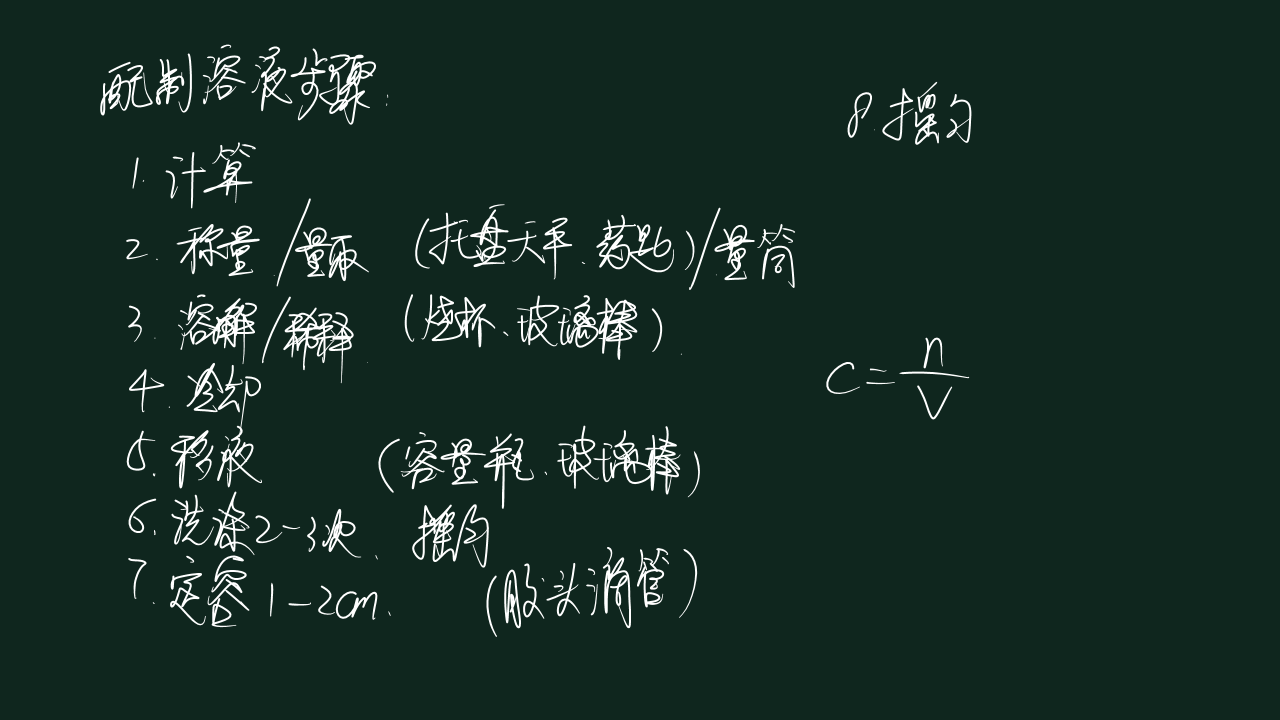 配制溶液步骤:
1. 计算
2. 称量/量取 (托盘天平、药匙)/量筒
3. 溶解/稀释 (烧杯、玻璃棒).
4. 冷却
5. 移液 (容量瓶、玻璃棒)
6. 洗涤2-3次、摇匀
7. 定容1-2cm. (胶头滴管)
8. 摇匀
C=n/V